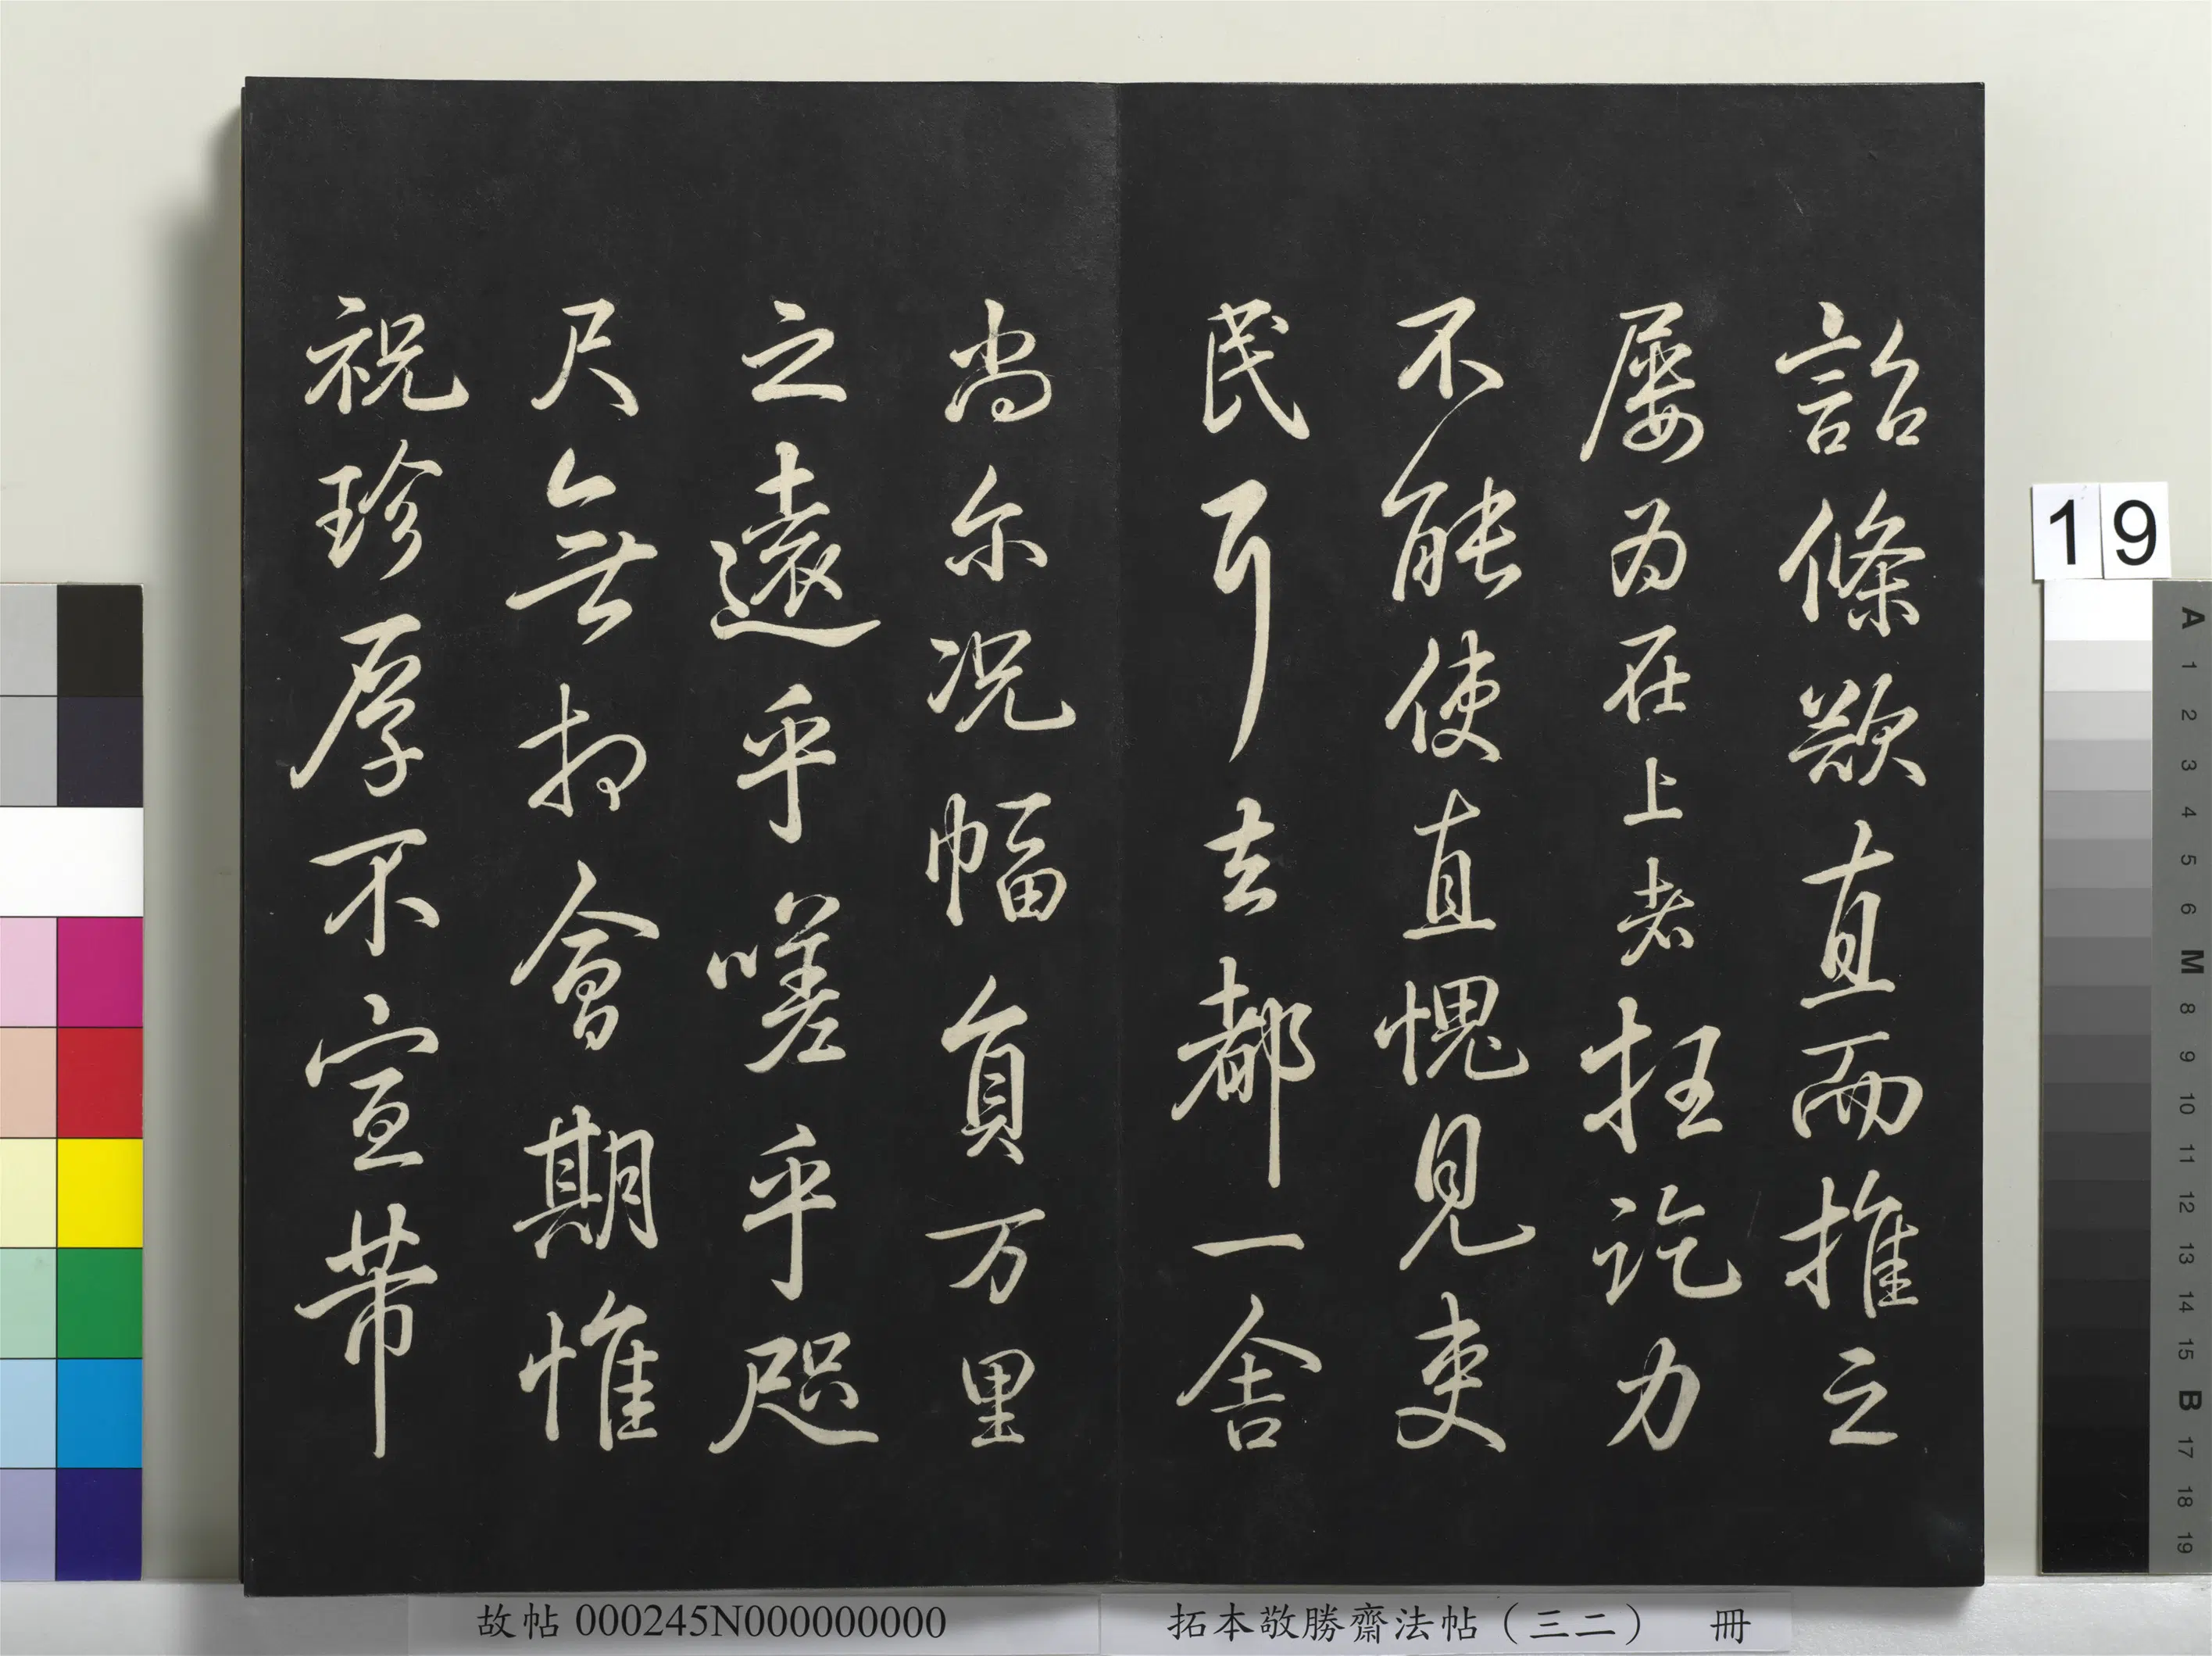 詔條欵直而推之
屡为在上者抂訖力
不能使直愧見吏
民耳去都一舍
尚尔况幅員万里
之遠乎嗟乎咫
尺無抝會期惟
祝珍厚不宣帯
19
A 1 2 3 4 5 6 M 8 9 10 11 12 13 14 15 B 17 18 19
故帖 000245N000000000
拓本敬勝齋法帖（三二） 冊